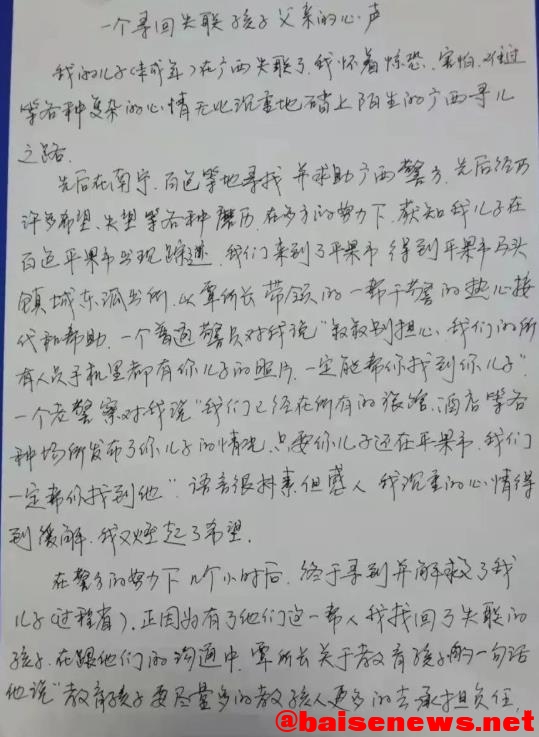 一个寻回失联孩子父亲的心声
我的儿子(未成年)在广西失联了,我怀着惊恐、害怕、难过
等各种复杂的心情无比沉重地踏上陌生的广西寻儿
之路。
先后在南宁、百色等地寻找 并求助广西警方,先后经历
许多希望、失望等各种磨历,在多方的努力下,获知我儿子在
百色平果市出现踪迹,我们来到了平果市 得到平果市马头
镇城东派出所,以覃所长带领的一帮干警的热心接
代和帮助,一个普通警员对我说“叔叔别担心,我们的所
有人员手机里都有你儿子的照片,一定能帮你找到你儿子”
一个老警察对我说“我们已经在所有的旅馆、酒店等各
种场所发布了你儿子的情况,只要你儿子还在平果市,我们
一定帮你找到他”语言很朴素但感人 我沉重的心情得
到缓解,我又燃起了希望。
在警方的努力下 几个小时后,终于寻到并解救了我
儿子(过程省),正因为有了他们这一帮人我找回了失联的
孩子,在跟他们的沟通中,覃所长关于教育孩子的一句话
他说“教育孩子要尽量多的教孩人更多的去承担负任,
@baisenews.net